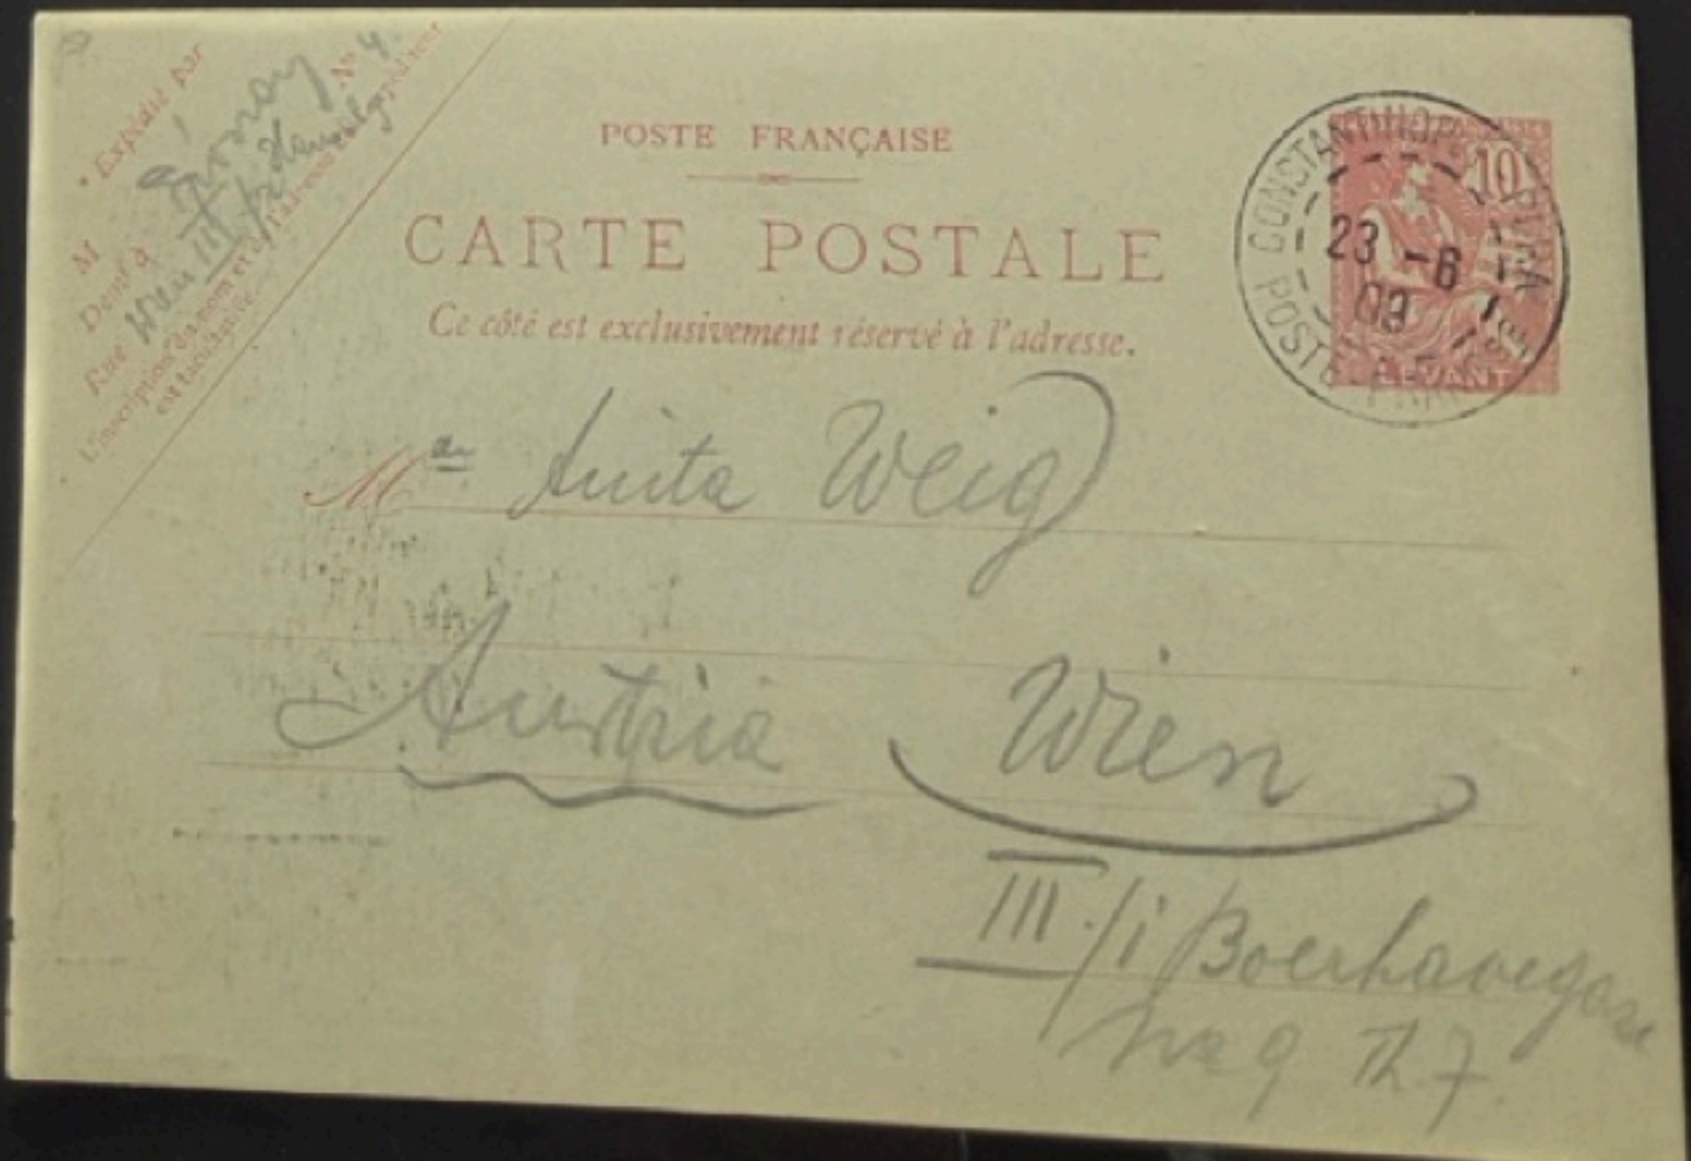 Expédié par
Nº 4.
M
Demt à
Rue Wien III/2
L'inscription du nom et de l'adresse de l'expéditeur
est facultative.
POSTE FRANÇAISE
CARTE POSTALE
Ce côté est exclusivement réservé à l'adresse.
CONSTANTINOPLE PERA
23 -6
09
POSTE FRANÇSE
10
LEVANT
M Anita Weig
Austria Wien
III./1 Boerhavegasse
9 Th 7.